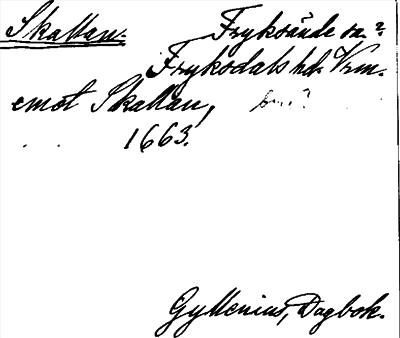 Skallan. Fryksände sn.?
Fryksdals hd. Vrm.
emot Skallan,
1663.
Gyllenius, Dagbok.